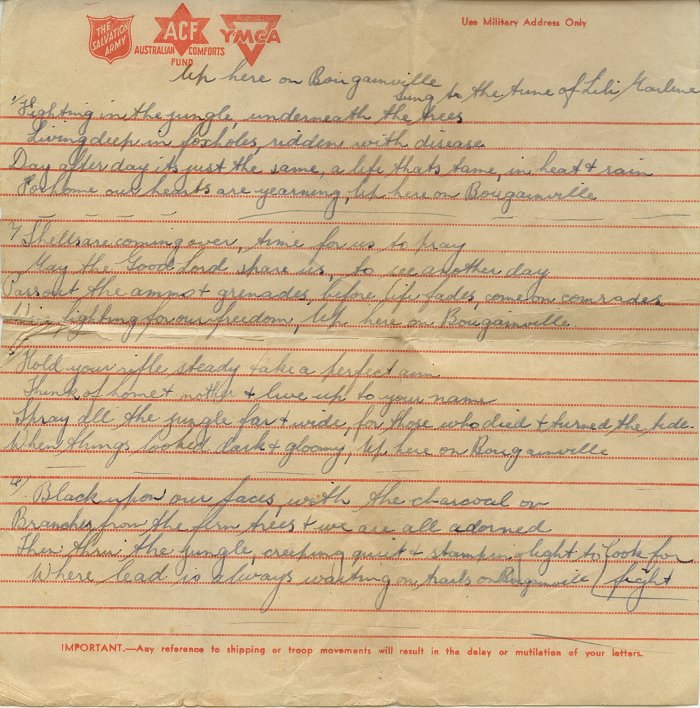 THE SALVATION ARMY
ACF
AUSTRALIAN COMFORTS FUND
YMCA
Use Military Address Only
Up here on Bougainville
Sung to the tune of Lili Marlene
1/ Fighting in the jungle, underneath the trees
Living deep in foxholes, ridden with disease
Day after day its just the same, a life thats tame, in heat & rain
For home our hearts are yearning, Up here on Bougainville
Shells are coming over, time for us to pray
May the Good Lord spare us, to see another day
Pass out the ammo & grenades, before life fades, come on comrades
fighting for our freedom, Up here on Bougainville.
Hold your rifle steady & take a perfect aim
Think of home & mother & live up to your name
Spray all the jungle far & wide, for those who died & turned the tide.
When things looked dark & gloomy, Up here on Bougainville
4/ Black upon our faces, with the charcoal on
Branches from the fern trees & we are all adorned
Then thru the jungle, creeping quiet & light to look for fight
Where lead is always waiting on trails on Bougainville
IMPORTANT.—Any reference to shipping or troop movements will result in the delay or mutilation of your letters.